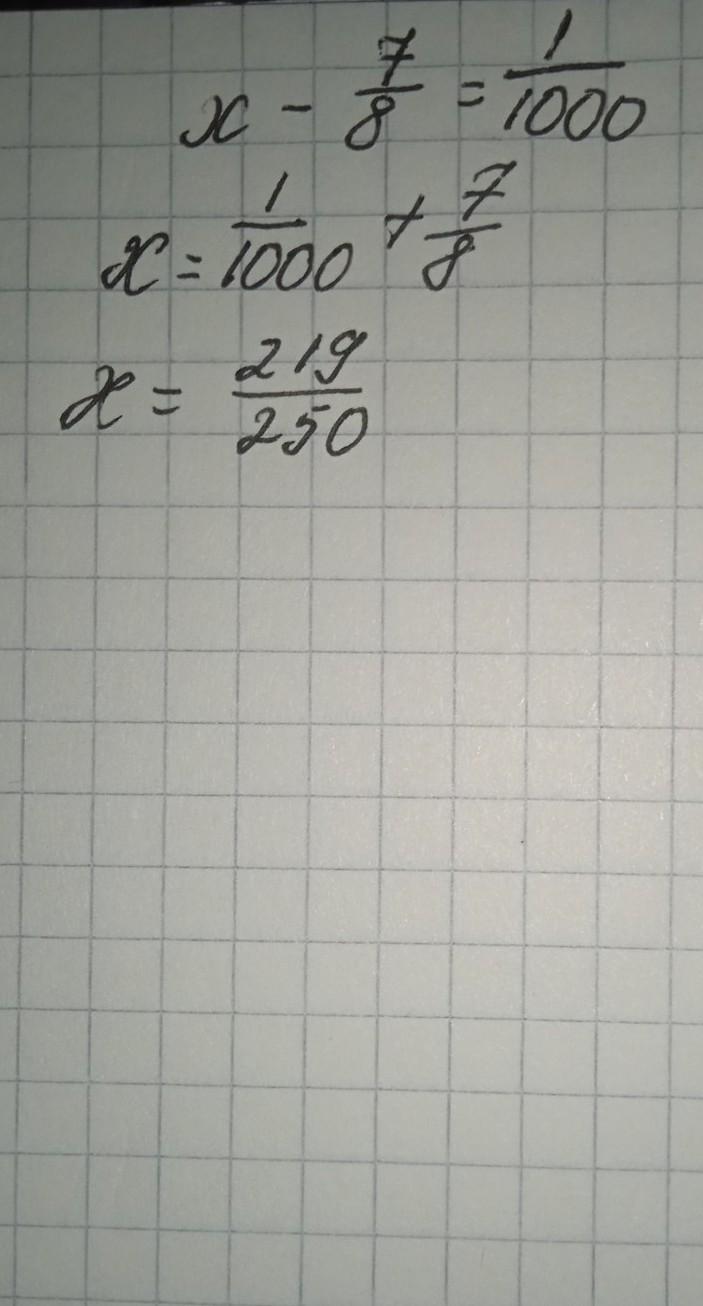 x - 7/8 = 1/1000
x = 1/1000 + 7/8
x = 219/250